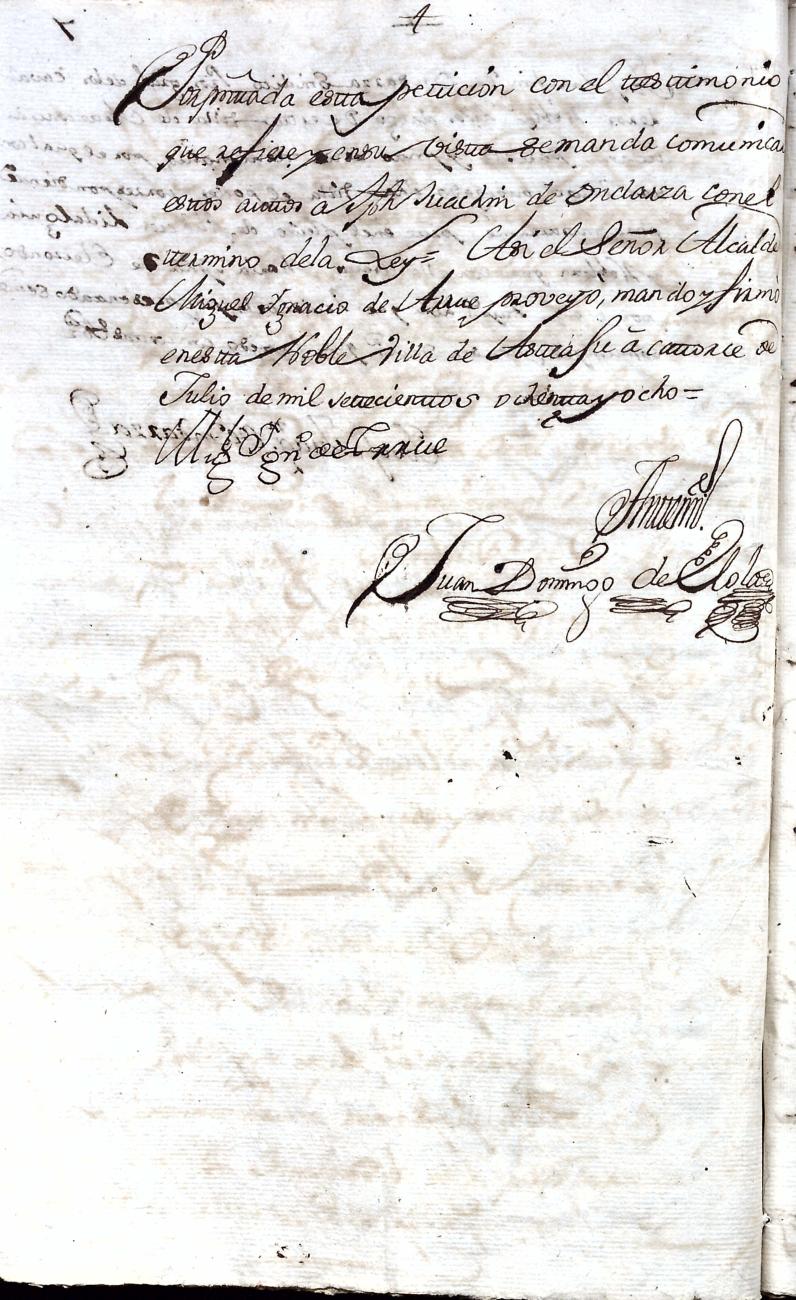 Por pntada esta peticion con el testimonio
que refiere y en su vista se manda comunicar
estos autos a Jph Juachin de Ondarza con el
termino de la Ley= Asi el Señor Alcalde
Miguel Ignacio de Arrue proveyo, mando y firmo
en esta Noble Villa de Asteasu â catorce de
Julio de mil setecientos ochenta y ocho=
Mig.l Ign.o de Arrue
Antemi
Juan Domingo de